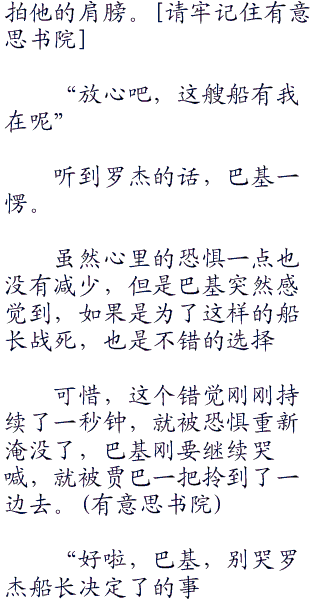 拍他的肩膀。[请牢记住有意
思书院]
“放心吧，这艘船有我
在呢”
听到罗杰的话，巴基一
愣。
虽然心里的恐惧一点也
没有减少，但是巴基突然感
觉到，如果是为了这样的船
长战死，也是不错的选择
可惜，这个错觉刚刚持
续了一秒钟，就被恐惧重新
淹没了，巴基刚要继续哭
喊，就被贾巴一把拎到了一
边去。(有意思书院)
“好啦，巴基，别哭罗
杰船长决定了的事